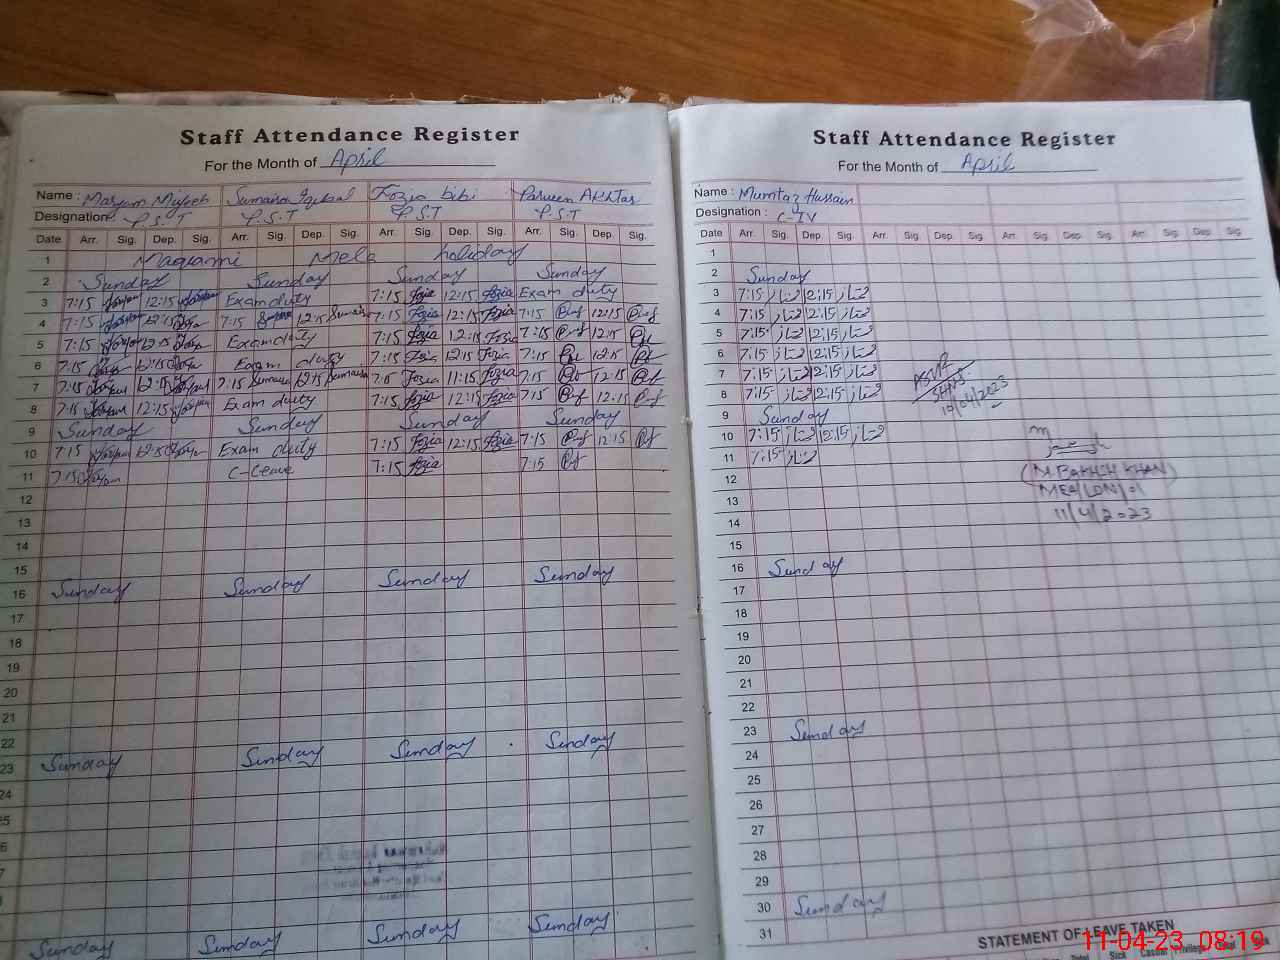 Staff Attendance Register
For the Month of April
Name : Maryam Mujeeb Sumaira Iqubal Fozia bibi Parveen Akhtar
Designation : P.S.T P.S.T P.S.T P.S.T
Date Arr. Sig. Dep. Sig. Arr. Sig. Dep. Sig. Arr. Sig. Dep. Sig. Arr. Sig. Dep. Sig.
1 Maqami Mela holiday
2 Sunday Sunday Sunday Sunday
3 7:15 12:15 Exam duty 7:15 Fozia 12:15 Fozia Exam duty
4 7:15 12:15 7:15 Sumaira 12:15 Sumaira 7:15 Fozia 12:15 Fozia 7:15 12:15
5 7:15 12:15 Exam duty 7:15 Fozia 12:15 Fozia 7:15 12:15
6 7:15 12:15 Exam duty 7:15 Fozia 12:15 Fozia 7:15 12:15
7 7:15 12:15 7:15 Sumaira 12:15 Sumaira 7:15 Fozia 11:15 Fozia 7:15 12:15
8 7:15 12:15 Exam duty 7:15 Fozia 12:15 Fozia 7:15 12:15
9 Sunday Sunday Sunday Sunday
10 7:15 12:15 Exam duty 7:15 Fozia 12:15 Fozia 7:15 12:15
11 7:15 C-Leave 7:15 Fozia 7:15
12
13
14
15
16 Sunday Sunday Sunday Sunday
17
18
19
20
21
22
23 Sunday Sunday Sunday Sunday
24
Sunday Sunday Sunday Sunday
Staff Attendance Register
For the Month of April
Name : Mumtaz Hussain
Designation : C-IV
Date Arr. Sig. Dep. Sig. Arr. Sig. Dep. Sig. Arr. Sig. Dep. Sig. Arr. Sig. Dep. Sig.
1
2 Sunday
3 7:15 ممتاز 12:15 ممتاز
4 7:15 ممتاز 12:15 ممتاز
5 7:15 ممتاز 12:15 ممتاز
6 7:15 ممتاز 12:15 ممتاز
7 7:15 ممتاز 12:15 ممتاز
8 7:15 ممتاز 12:15 ممتاز
10/04/2023
9 Sunday
10 7:15 ممتاز 12:15 ممتاز
11 7:15 ممتاز
12
(M BAKHSH KHAN)
13
MEA/LDN/01
14
11/4/2023
15
16 Sunday
17
18
19
20
21
22
23 Sunday
24
25
26
27
28
29
30 Sunday
31
STATEMENT OF LEAVE TAKEN
Sick Casual Privilege
11-04-23 08:19